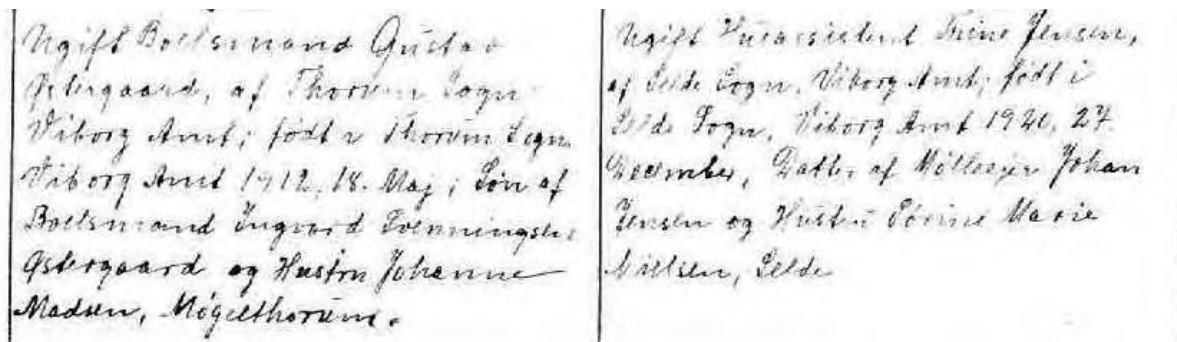 Ugift Boelsmand Gustav
Østergaard, af Thorum Sogn
Viborg Amt; født i Thorum Sogn
Viborg Amt 1912, 18. Maj; Søn af
Boelsmand Ingvard Svenningsen
Østergaard og Hustru Johanne
Madsen, Møgelthorum.
Ugift Husassistent Trine Jensen,
af Selde Sogn, Viborg Amt; født i
Selde Sogn, Viborg Amt 1920, 27.
December, Datter af Mølleejer Johan
Jensen og Hustru Sørine Marie
Nielsen, Selde